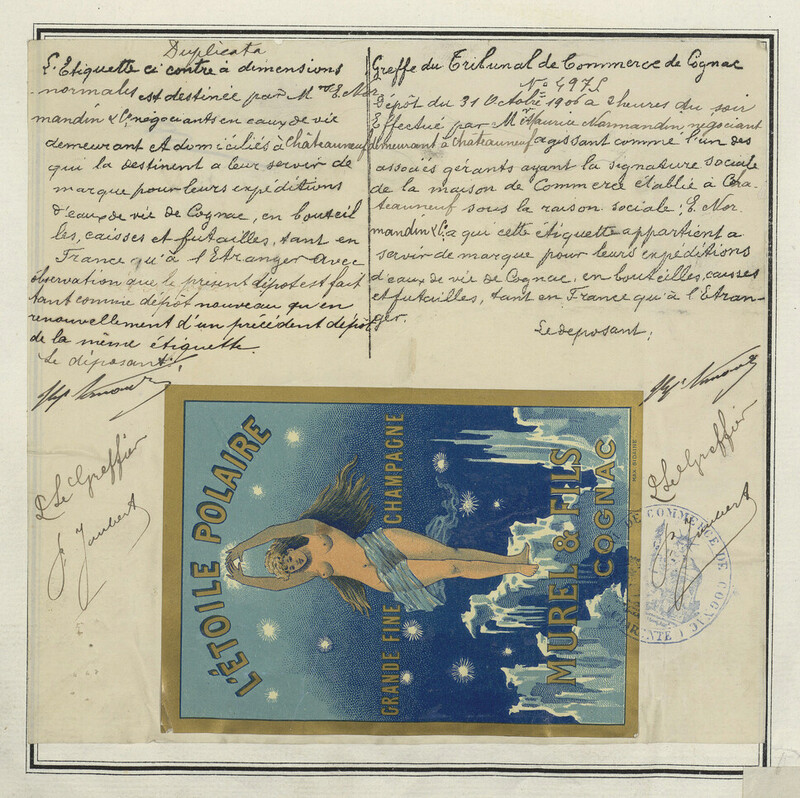 Duplicata
L'Etiquette ci contre à dimensions
normales est destinée par M.rs E. Nor
mandin & Cie négociants en eaux de vie
demeurant et domiciliés à Châteauneuf
qui la destinent a leur servir de
marque pour leurs expéditions
d'eaux de vie de Cognac, en bouteil
les, caisses et futailles, tant en
France qu'à l'Etranger avec
observation que le présent dépôt est fait
tant comme dépôt nouveau qu'en
renouvellement d'un précédent dépôt
de la même étiquette.
Le déposant;
P. Le Greffier
J. Joubert
Greffe du Tribunal de Commerce de Cognac
N° 4975
Dépôt du 31 Octobre 1906 à 2 heures du soir
Effectué par M.r Maurice Normandin, négociant
demeurant à Châteauneuf agissant comme l'un des
associés gérants ayant la signature sociale
de la maison de Commerce établie à Châ-
teauneuf sous la raison sociale; E. Nor
mandin & Cie a qui cette étiquette appartient a
servir de marque pour leurs expéditions
d'eaux de vie de Cognac, en bouteilles, caisses
et futailles, tant en France qu'à l'Etran-
ger.
Le déposant;
P. Le Greffier
J. Joubert
L'ÉTOILE POLAIRE
GRANDE FINE CHAMPAGNE
MUREL & FILS
COGNAC
DE COMMERCE DE COGNAC
CHARENTE